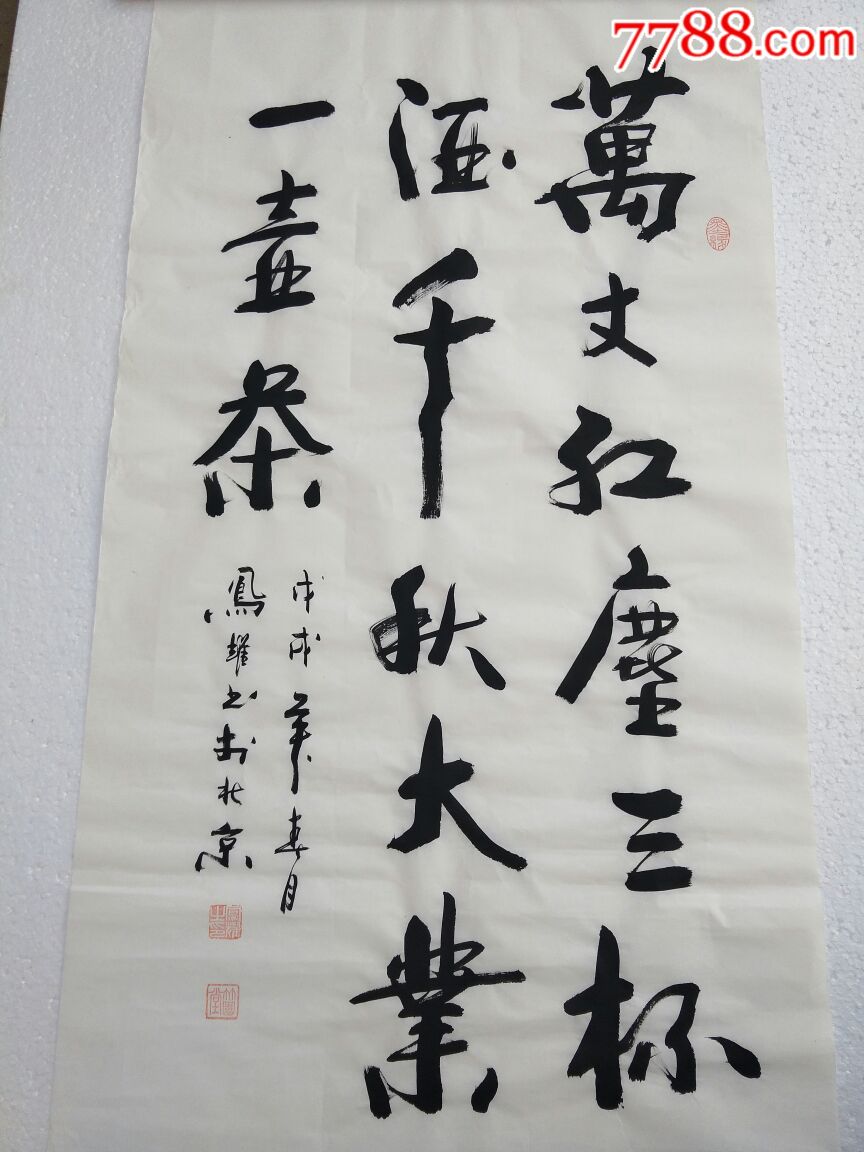 7788.com
萬丈红塵三杯
酒千秋大業
一壶茶
戊戌年春月
鳳雄书于北京